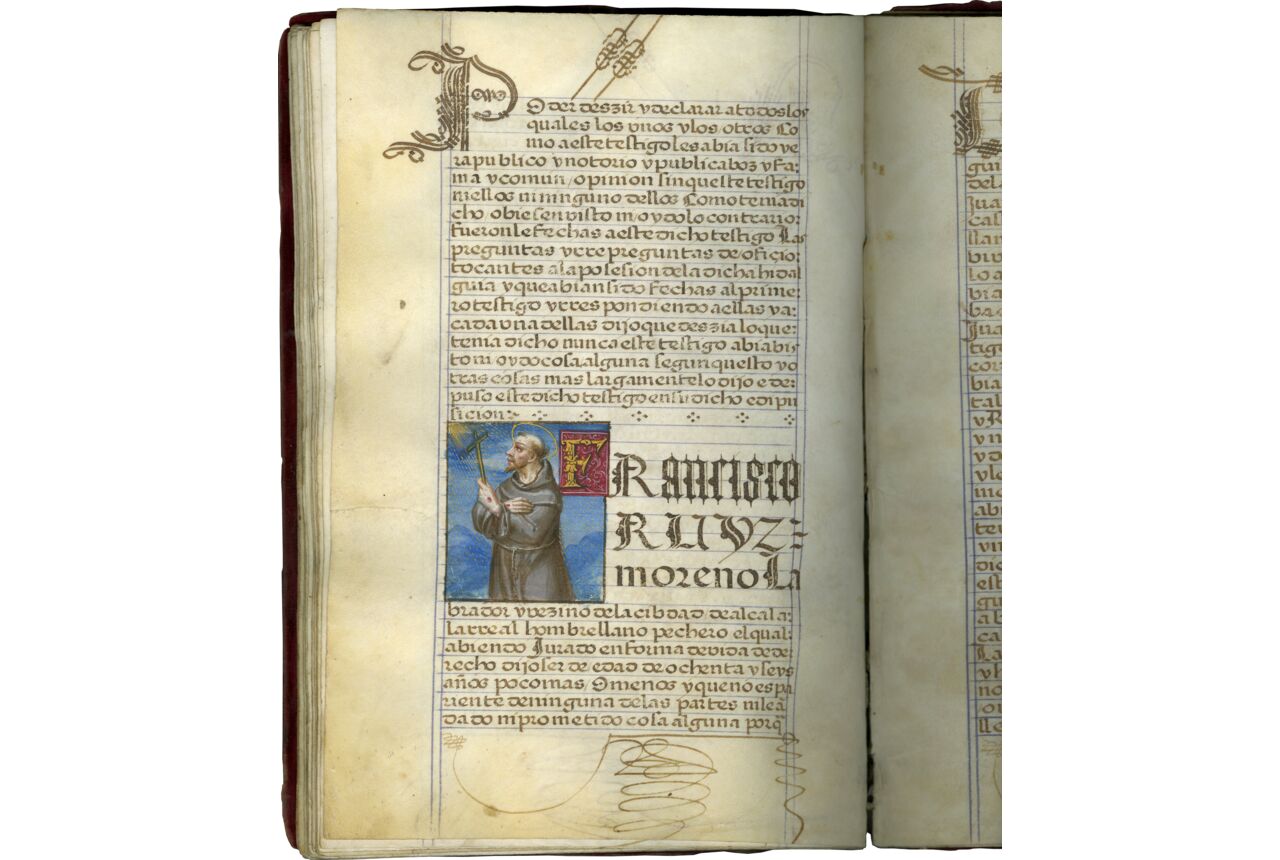 Para
Poder deszir y declarar a todos los
quales los vnos y los otros Co
mo a este testigo les abia sido ve
ra publico y notorio y publica boz y fa:
ma y comun opinion sin que este testigo
ni ellos ni ninguno dellos Como tenia di
cho obiesen visto ni oydo lo contrario:
fueronle fechas a este dicho testigo Las
preguntas y rrepreguntas de ofiçio:
tocantes a la posesion de la dicha hidal
guia y que abian sido fechas al prime:
ro testigo y rrespondiendo a ellas y a:
cada vna dellas dijo que deszia lo que:
tenia dicho nunca este testigo abia bis
to ni oydo cosa alguna segun questo y o
tras cosas mas largamente lo dijo e de:
puso este dicho testigo en su dicho e dipu
sicion:
FRancisco
RUyz=
moreno La
brador y vezino de la cibdad de alcala:
la rreal hombre llano pechero el qual:
abiendo Jurado en forma devida de de:
recho dijo ser de edad de ochenta y seys
años poco mas o menos y que no es pa
riente de ninguna de las partes ni le an
dado ni prometido cosa alguna porq̃
gui
de la
Jua
cas
llan
biv
lo a
bia
ba
Jua
tig
cor
bia
tal
y R
y n
y d
y lo
mo
abi
ten
vin
dic
est
gu
ab
ca
La
y h
no
ou
lle